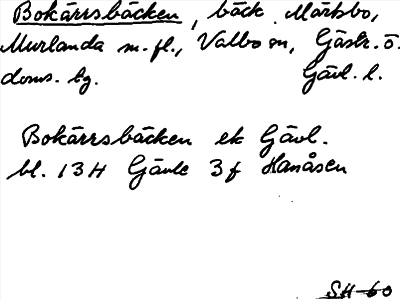 Bokärrsbäcken, bäck. Mårtsbo,
Murlanda m.fl., Valbo sn, Gästr. ö.
doms. hg. Gävl. l.
Bokärrsbäcken ek Gävl.
bl. 13H Gävle 3f Hanåsen
SH 60